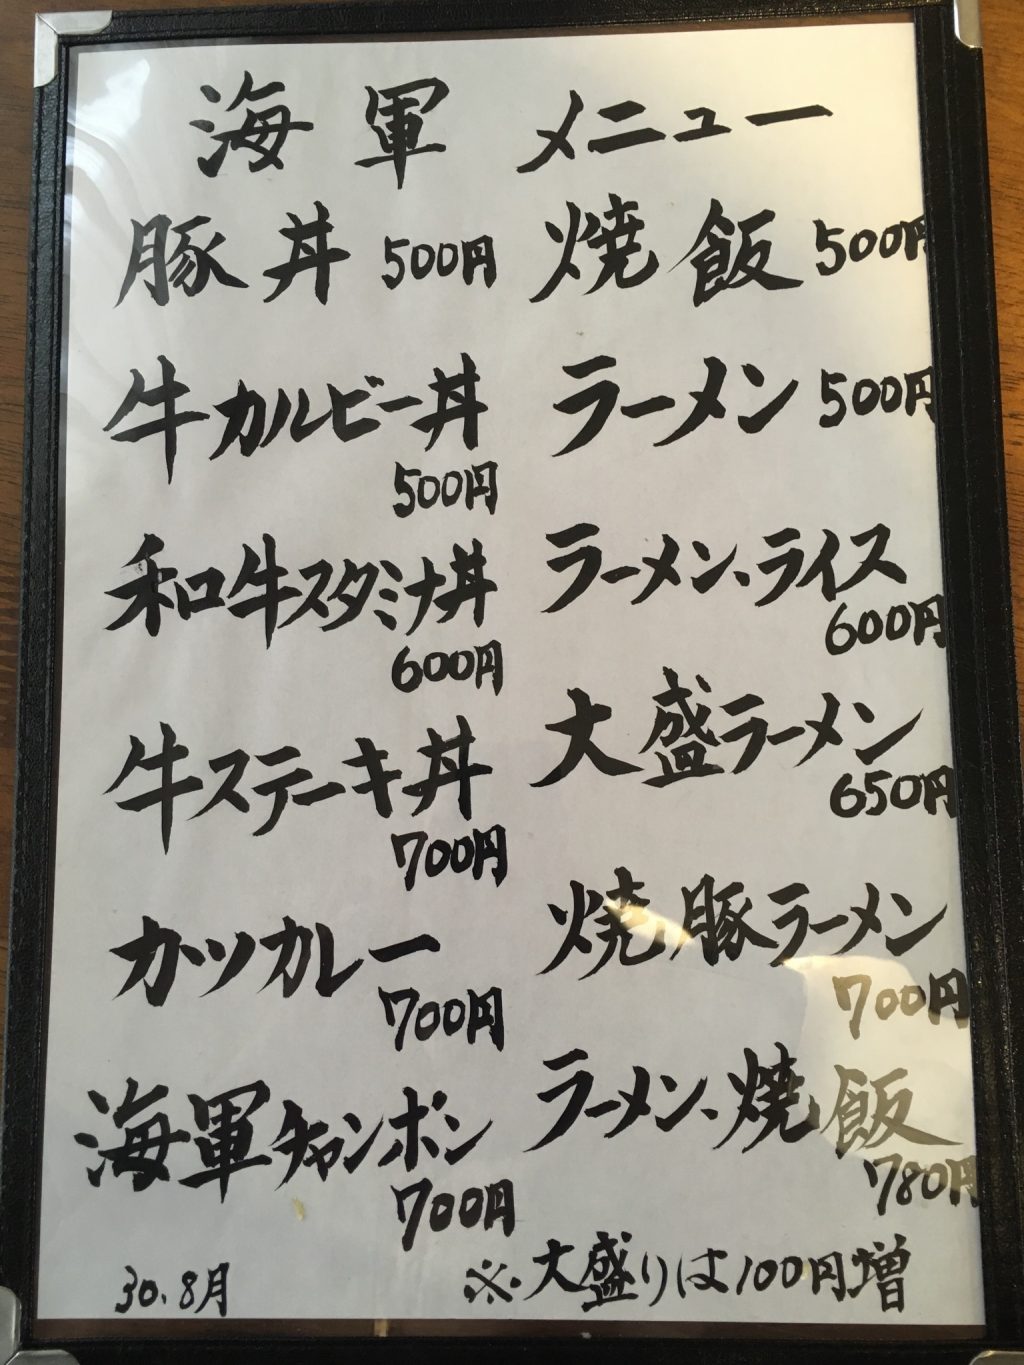 海軍 メニュー
豚丼 500円
牛カルビー丼
500円
和牛スタミナ丼
600円
牛ステーキ丼
700円
カツカレー
700円
海軍チャンポン
700円
30.8月
焼飯 500円
ラーメン 500円
ラーメン、ライス
600円
大盛ラーメン
650円
焼豚ラーメン
700円
ラーメン、焼飯
780円
※大盛りは100円増